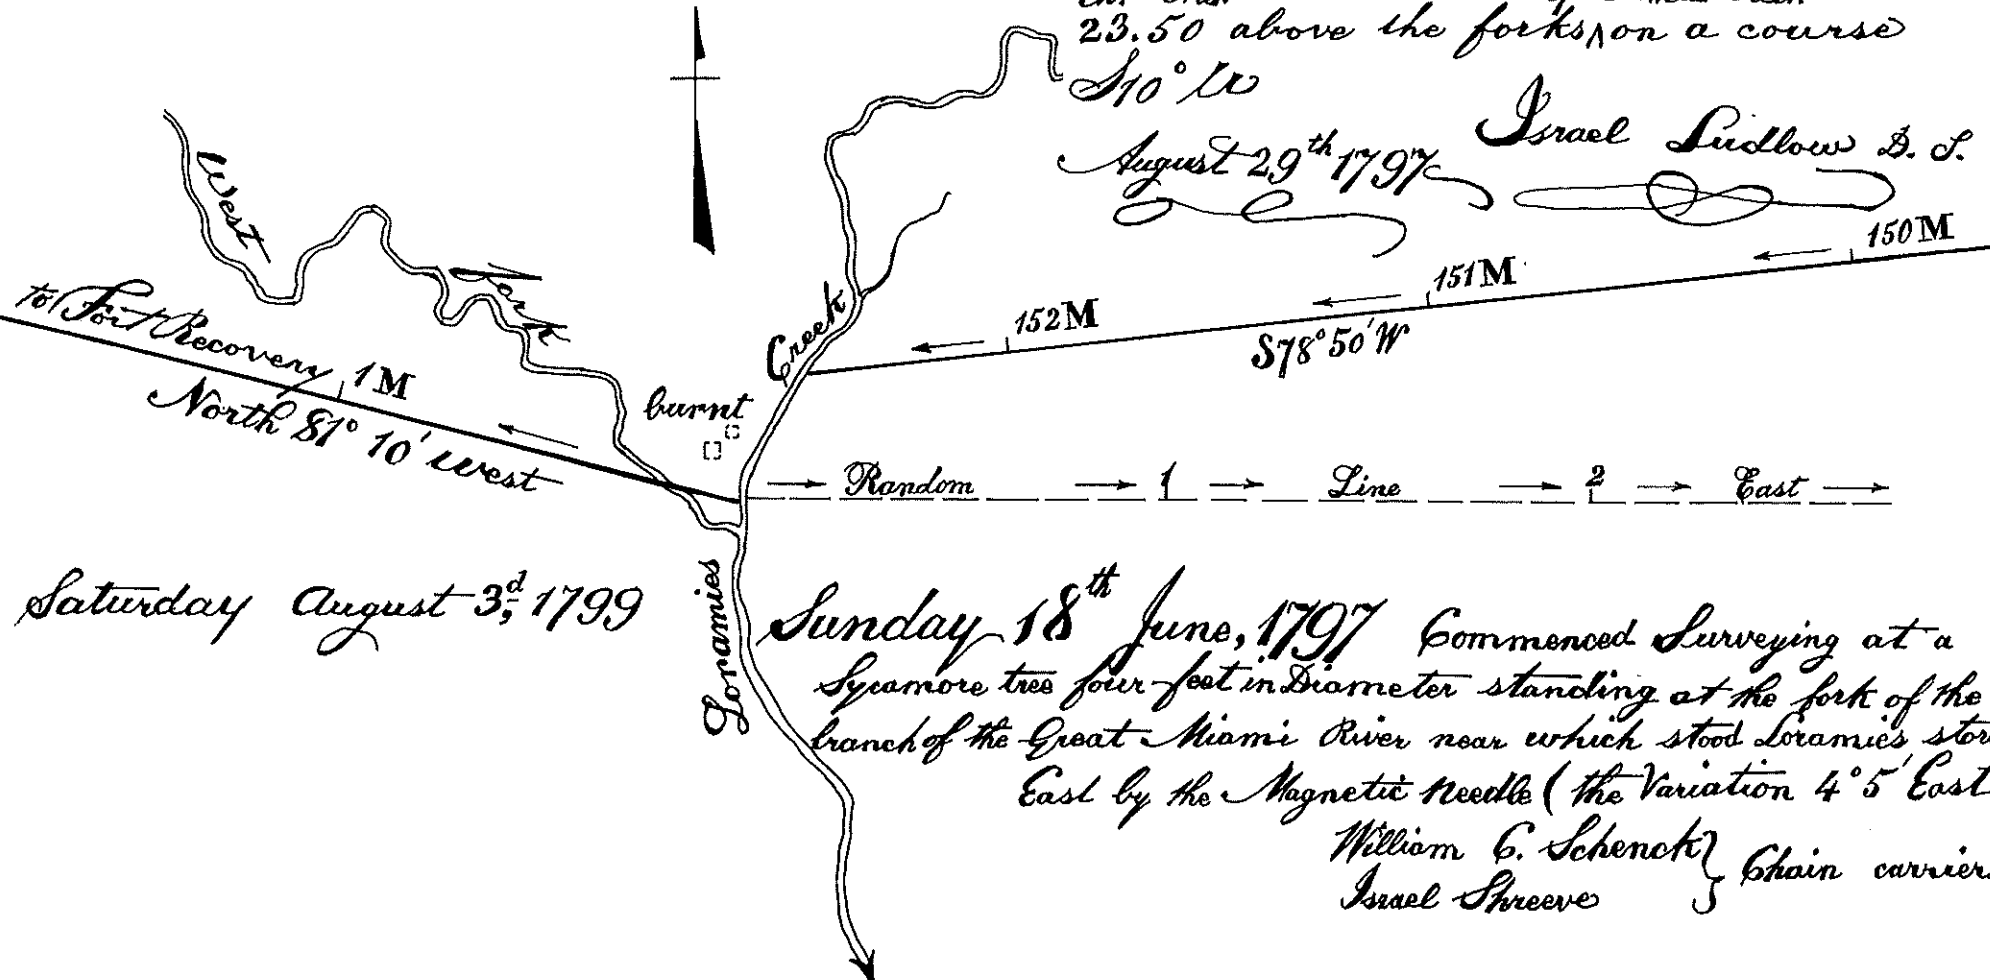 23.50 above the forks, on a course
S 10° W
Israel Ludlow D. S.
August 29th 1797
150 M
151 M
152 M
S 78° 50' W
West
Fork
to Fort Recovery
1 M
North 81° 10' West
Creek
burnt
Random 1 Line 2 East
Loramies
Saturday August 3d, 1799
Sunday 18th June, 1797 Commenced Surveying at a
Sycamore tree four feet in Diameter standing at the fork of the
branch of the Great Miami River near which stood Loramies
East by the Magnetic Needle ( the Variation 4° 5' East
William C. Schenck }
Israel Shreeve } Chain